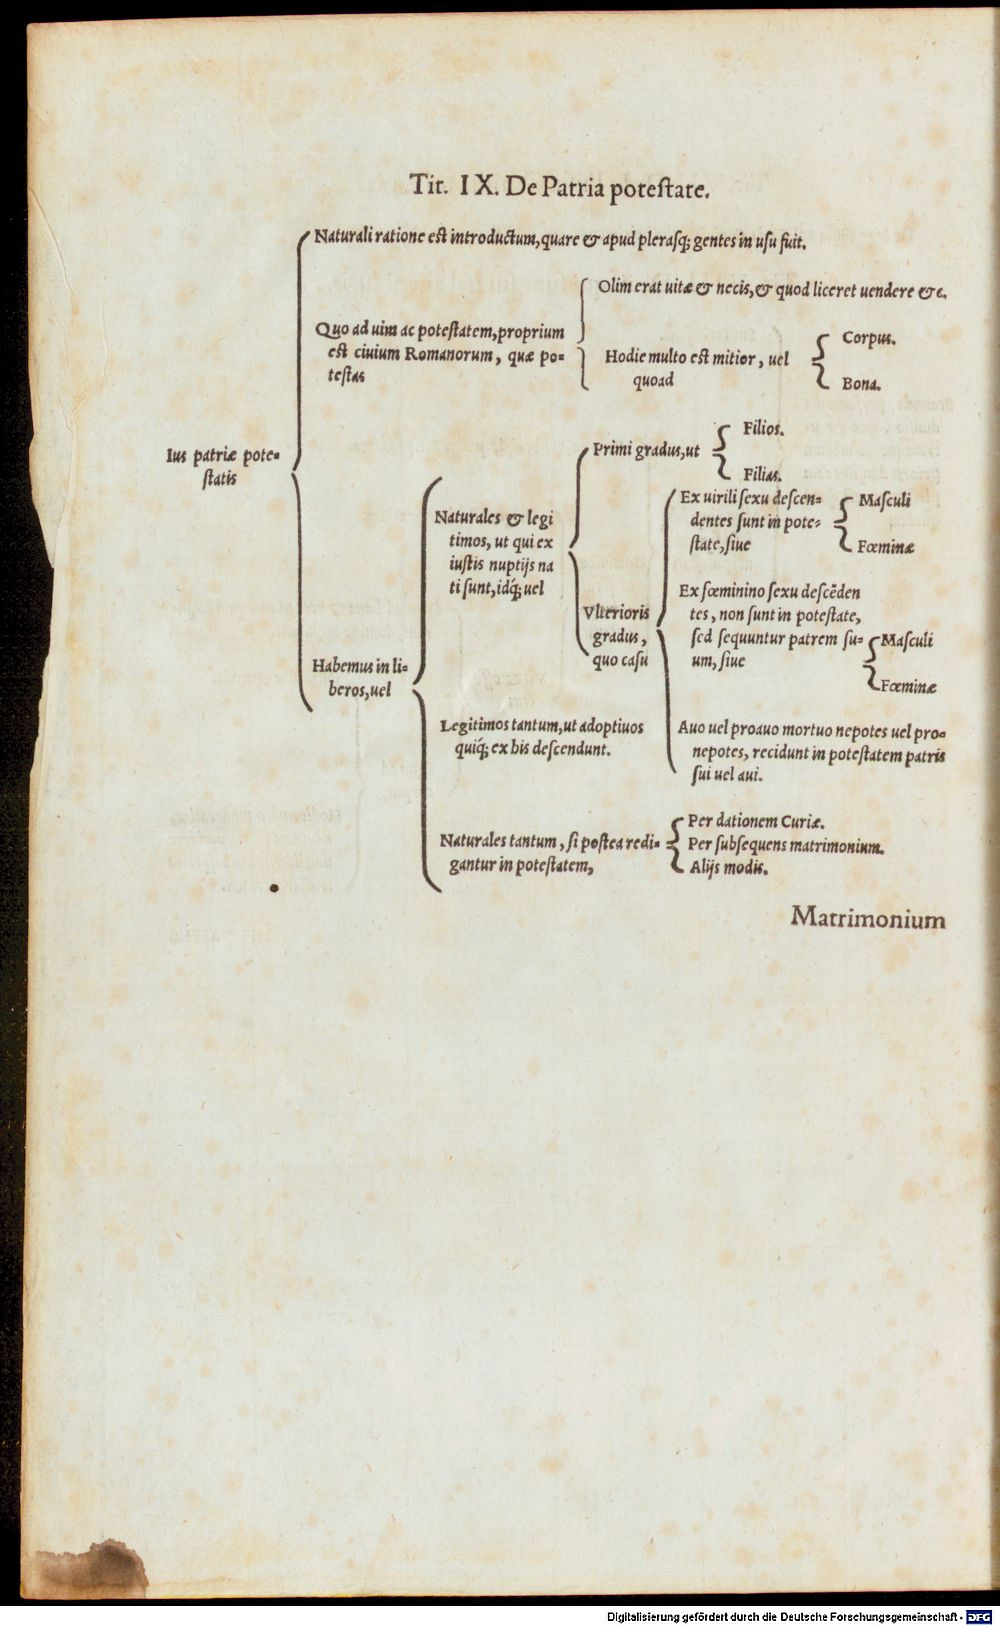 Tit. IX. De Patria potestate.
Naturali ratione est introductum, quare & apud plerasq; gentes in usu fuit.
Olim erat uitæ & necis, & quod liceret uendere &c.
Quo ad uim ac potestatem, proprium
est ciuium Romanorum, quæ po=
testas
Hodie multo est mitior, uel
quoad
Corpus.
Bona.
Ius patriæ pote=
statis
Habemus in li=
beros, uel
Naturales & legi
timos, ut qui ex
iustis nuptijs na
ti sunt, idq́; uel
Primi gradus, ut
Filios.
Filias.
Vlterioris
gradus,
quo casu
Ex uirili sexu descen=
dentes sunt in pote=
state, siue
Masculi
Fœminæ
Ex fœminino sexu descēden
tes, non sunt in potestate,
sed sequuntur patrem su=
um, siue
Masculi
Fœminæ
Auo uel proauo mortuo nepotes uel pro=
nepotes, recidunt in potestatem patris
sui uel aui.
Legitimos tantum, ut adoptiuos
quiq́; ex his descendunt.
Naturales tantum, si postea redi=
gantur in potestatem,
Per dationem Curiæ.
Per subsequens matrimonium.
Alijs modis.
Matrimonium
Digitalisierung gefördert durch die Deutsche Forschungsgemeinschaft - DFG